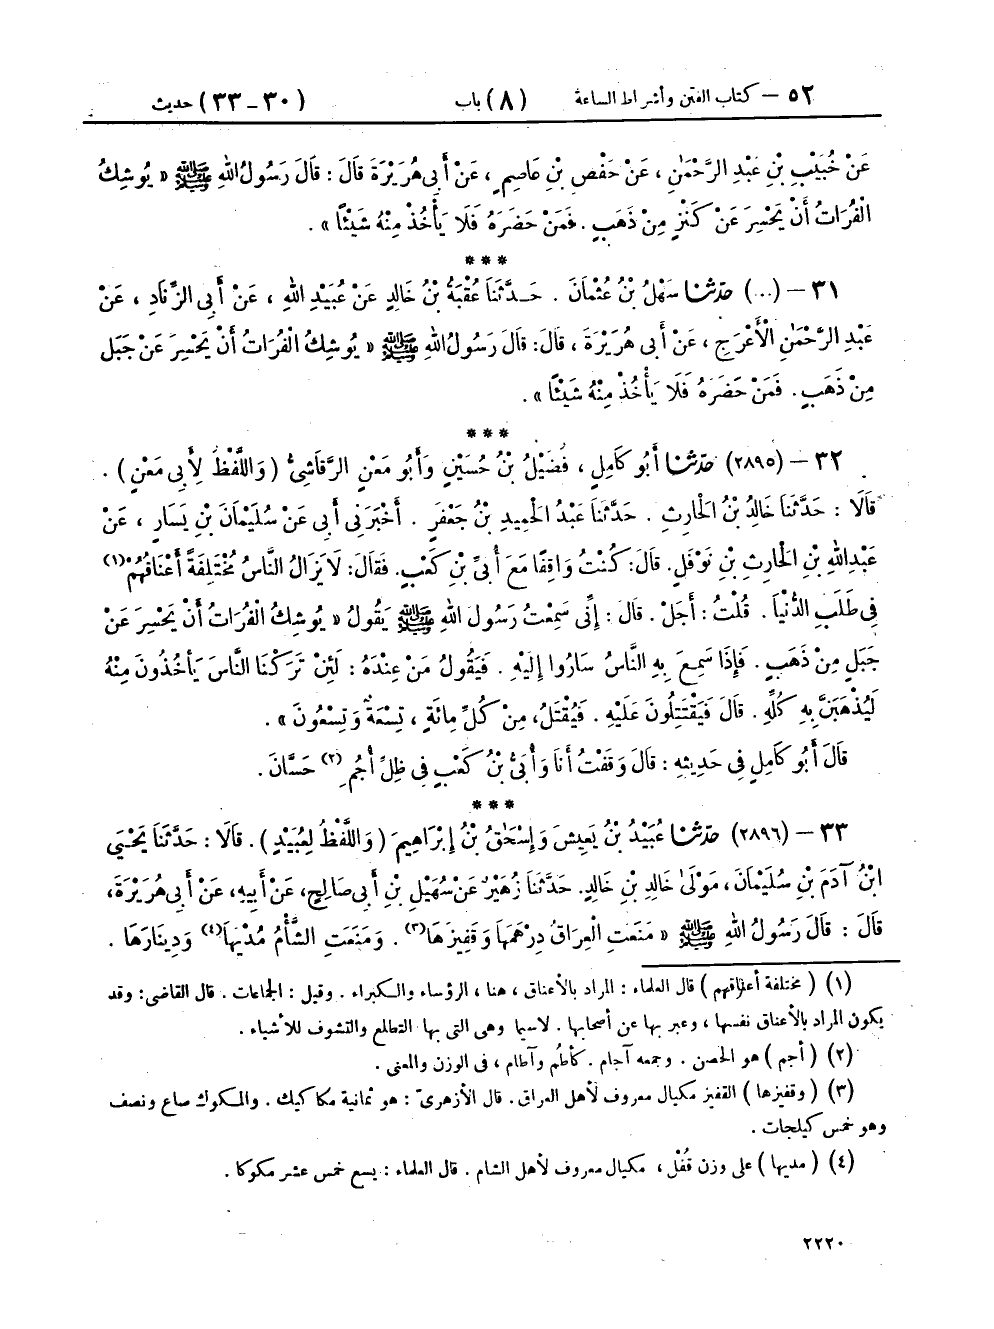 ٥٢ – كتاب الفتن وأشراط الساعة (٨) باب (٣٠-٣٣) حديث
عَنْ خُبَيْبِ بْنِ عَبْدِ الرَّحْمَٰنِ ، عَنْ حَفْصِ بْنِ عَاصِمٍ ، عَنْ أَبِي هُرَيْرَةَ قَالَ : قَالَ رَسُولُ اللهِ ﷺ « يُوشِكُ
الْفُرَاتُ أَنْ يَحْسِرَ عَنْ كَنْزٍ مِنْ ذَهَبٍ . فَمَنْ حَضَرَهُ فَلَا يَأْخُذْ مِنْهُ شَيْئًا » .
***
٣١ – (...) حَدَّثَنَا سَهْلُ بْنُ عُثْمَانَ . حَدَّثَنَا عُقْبَةُ بْنُ خَالِدٍ عَنْ عُبَيْدِ اللهِ ، عَنْ أَبِي الزِّنَادِ ، عَنْ
عَبْدِ الرَّحْمَٰنِ الْأَعْرَجِ ، عَنْ أَبِي هُرَيْرَةَ ، قَالَ: قَالَ رَسُولُ اللهِ ﷺ « يُوشِكُ الْفُرَاتُ أَنْ يَحْسِرَ عَنْ جَبَلٍ
مِنْ ذَهَبٍ . فَمَنْ حَضَرَهُ فَلَا يَأْخُذْ مِنْهُ شَيْئًا » .
***
٣٢ – (٢٨٩٥) حَدَّثَنَا أَبُو كَامِلٍ ، فُضَيْلُ بْنُ حُسَيْنٍ وَأَبُو مَعْنٍ الرَّقَاشِيُّ ( وَاللَّفْظُ لِأَبِي مَعْنٍ ) .
قَالَا : حَدَّثَنَا خَالِدُ بْنُ الْحَارِثِ . حَدَّثَنَا عَبْدُ الْحَمِيدِ بْنُ جَعْفَرٍ . أَخْبَرَنِي أَبِي عَنْ سُلَيْمَانَ بْنِ يَسَارٍ ، عَنْ
عَبْدِ اللهِ بْنِ الْحَارِثِ بْنِ نَوْفَلٍ. قَالَ: كُنْتُ وَاقِفًا مَعَ أُبَيِّ بْنِ كَعْبٍ. فَقَالَ: لَا يَزَالُ النَّاسُ مُخْتَلِفَةً أَعْنَاقُهُمْ(١)
فِي طَلَبِ الدُّنْيَا . قُلْتُ : أَجَلْ . قَالَ : إِنِّي سَمِعْتُ رَسُولَ اللهِ ﷺ يَقُولُ « يُوشِكُ الْفُرَاتُ أَنْ يَحْسِرَ عَنْ
جَبَلٍ مِنْ ذَهَبٍ . فَإِذَا سَمِعَ بِهِ النَّاسُ سَارُوا إِلَيْهِ . فَيَقُولُ مَنْ عِنْدَهُ : لَئِنْ تَرَكْنَا النَّاسَ يَأْخُذُونَ مِنْهُ
لَيُذْهَبَنَّ بِهِ كُلِّهِ . قَالَ فَيَقْتَتِلُونَ عَلَيْهِ . فَيُقْتَلُ، مِنْ كُلِّ مِائَةٍ ، تِسْعَةٌ وَتِسْعُونَ » .
قَالَ أَبُو كَامِلٍ فِي حَدِيثِهِ : قَالَ وَقَفْتُ أَنَا وَأُبَيُّ بْنُ كَعْبٍ فِي ظِلِّ أُجُمِ(٢) حَسَّانَ .
***
٣٣ – (٢٨٩٦) حَدَّثَنَا عُبَيْدُ بْنُ يَعِيشَ وَإِسْحَاقُ بْنُ إِبْرَاهِيمَ ( وَاللَّفْظُ لِعُبَيْدٍ ) . قَالَا : حَدَّثَنَا يَحْيَى
ابْنُ آدَمَ بْنِ سُلَيْمَانَ، مَوْلَى خَالِدِ بْنِ خَالِدٍ. حَدَّثَنَا زُهَيْرٌ عَنْ سُهَيْلِ بْنِ أَبِي صَالِحٍ، عَنْ أَبِيهِ، عَنْ أَبِي هُرَيْرَةَ،
قَالَ : قَالَ رَسُولُ اللهِ ﷺ « مَنَعَتِ الْعِرَاقُ دِرْهَمَهَا وَقَفِيزَهَا(٣) . وَمَنَعَتِ الشَّأْمُ مُدْيَهَا(٤) وَدِينَارَهَا .
(١) ( مختلفة أعناقهم ) قال العلماء : المراد بالأعناق ، هنا ، الرؤساء والكبراء . وقيل : الجماعات . قال القاضي: وقد
يكون المراد بالأعناق نفسها ، وعبر بها عن أصحابها . لاسيما وهى التى بها التطلع والتشوف للأشياء .
(٢) ( أجم ) هو الحصن . وجمعه آجام . كأطُم وآطام ، فى الوزن والمعنى .
(٣) ( وقفيزها ) القفيز مكيال معروف لأهل العراق. قال الأزهرىّ : هو ثمانية مكاكيك . والمكوك صاع ونصف
وهو خمس كيلجات .
(٤) ( مديها ) على وزن قُفْل ، مكيال معروف لأهل الشام . قال العلماء : يسع خمس عشر مكوكا .
٢٢٢٠